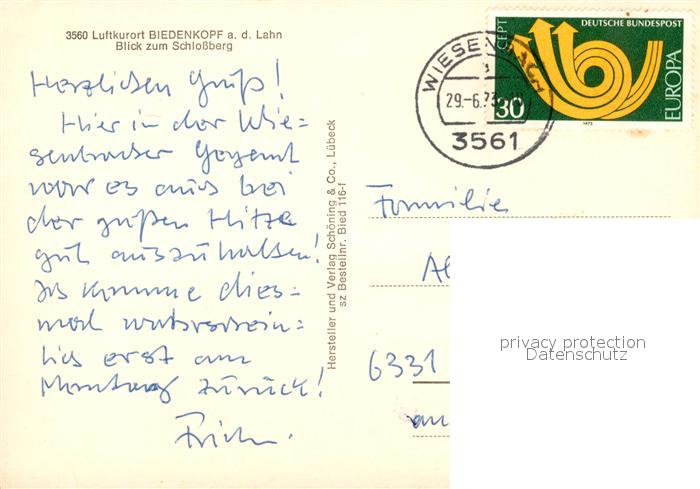 3560 Luftkurort BIEDENKOPF a. d. Lahn
Blick zum Schloßberg
Herzlichen Gruß!
Hier in der Wie=
senbacher Gegend
war es auch bei
der großen Hitze
gut auszuhalten!
Ich komme dies=
mal wahrschein=
lich erst am
Montag zurück!
Hersteller und Verlag Schöning & Co., Lübeck
sz Bestellnr. Bied 116-f
WIESENBACH
29.-6.73
3561
CEPT
DEUTSCHE BUNDESPOST
EUROPA
30
1973
Familie
Al
6331
privacy protection
Datenschutz